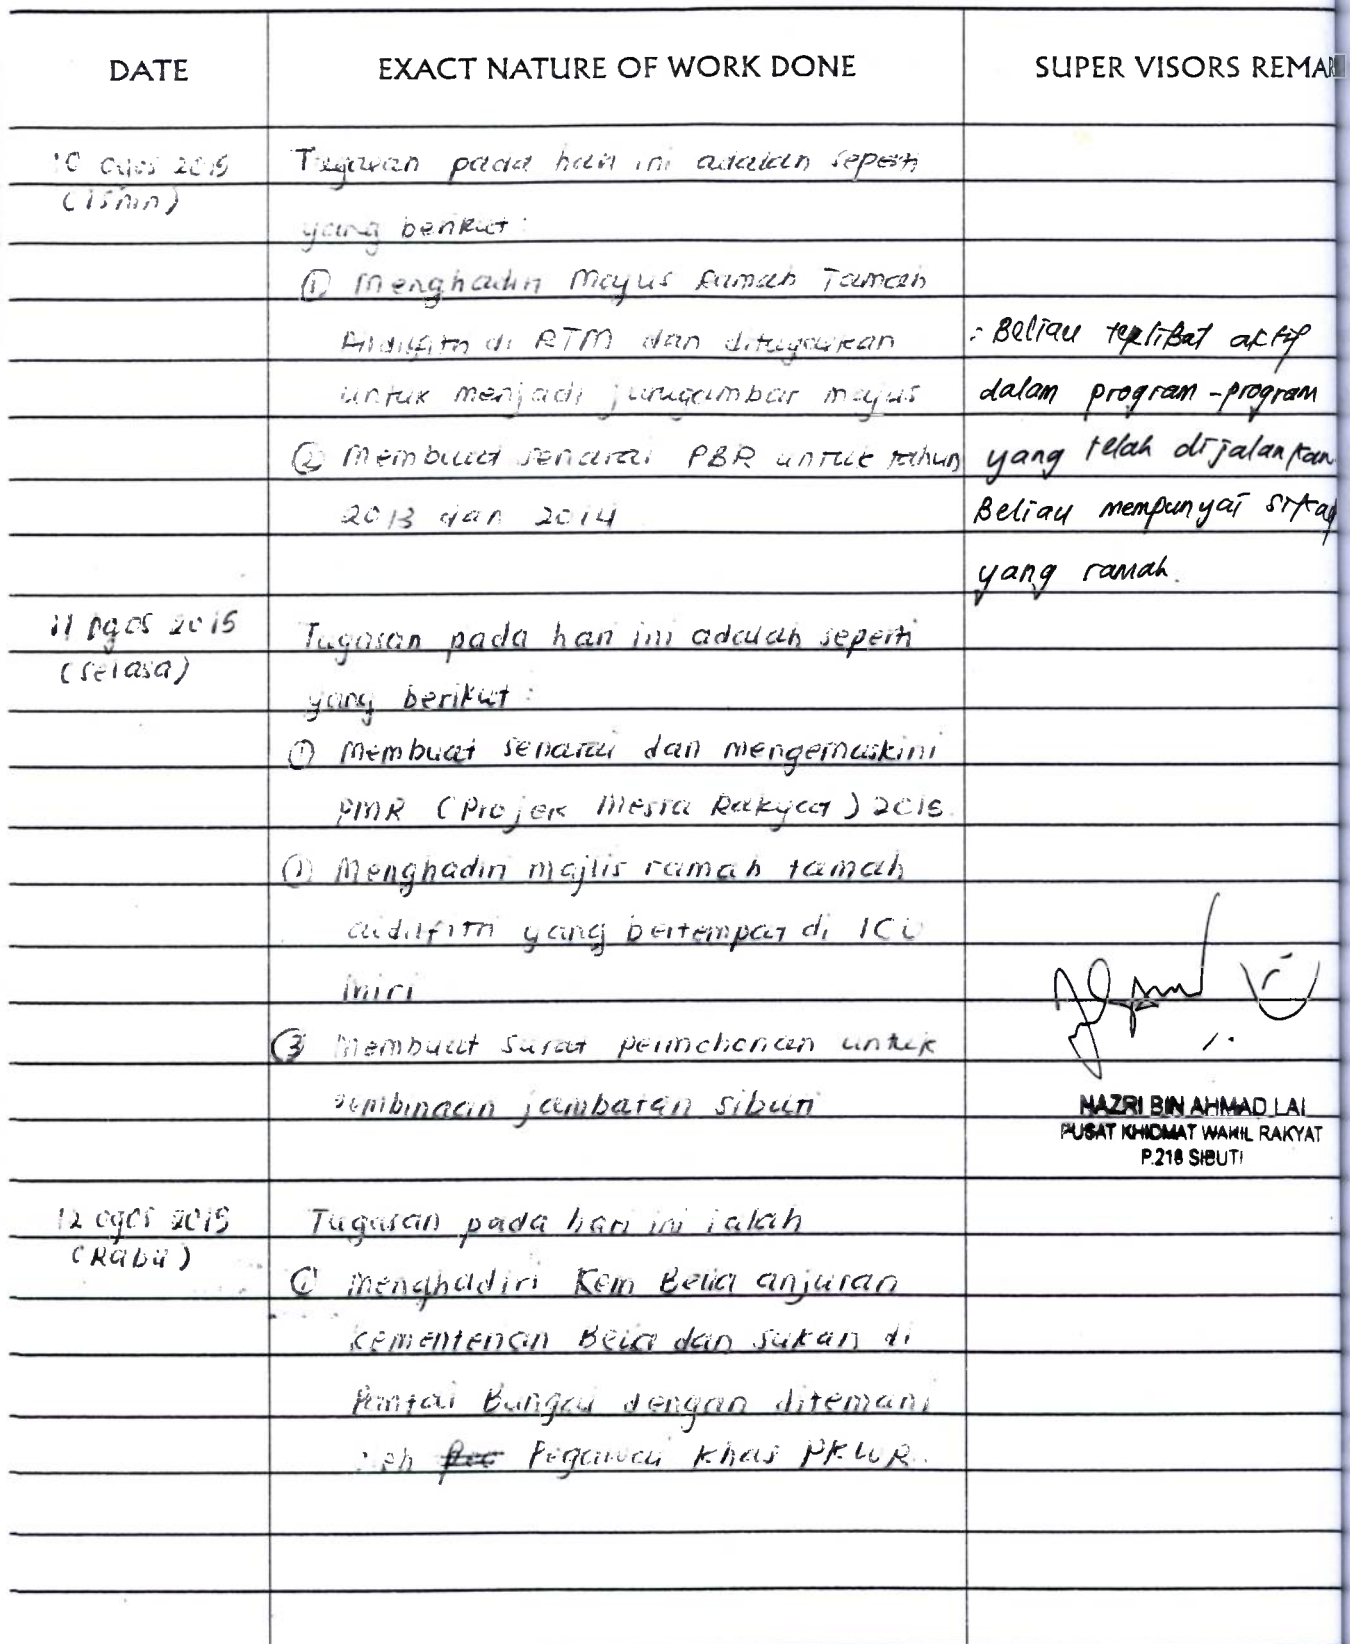 DATE
EXACT NATURE OF WORK DONE
SUPER VISORS REMAR
10 Ogos 2015
(Isnin)
Tugasan pada hari ini adalah seperti
yang berikut :
① Menghadiri Majlis Ramah Tamah
Aidilfitri di RTM dan ditugaskan
untuk menjadi jurugambar majlis
② Membuat senarai PBR untuk tahun
2013 dan 2014
: Beliau terlibat aktif
dalam program-program
yang telah dijalankan
Beliau mempunyai sikap
yang ramah.
11 Ogos 2015
(Selasa)
Tugasan pada hari ini adalah seperti
yang berikut :
① Membuat senarai dan mengemaskini
PMR (Projek Mesra Rakyat) 2015.
② Menghadiri majlis ramah tamah
aidilfitri yang bertempat di ICU
Miri
③ Membuat surat permohonan untuk
pembinaan jambatan sibuti
NAZRI BIN AHMAD LAI
PUSAT KHIDMAT WAKIL RAKYAT
P.218 SIBUTI
12 Ogos 2015
(Rabu)
Tugasan pada hari ini ialah
① Menghadiri Kem Belia anjuran
Kementerian Belia dan Sukan di
Pantai Bungai dengan ditemani
oleh Pegawai Khas PKWR.